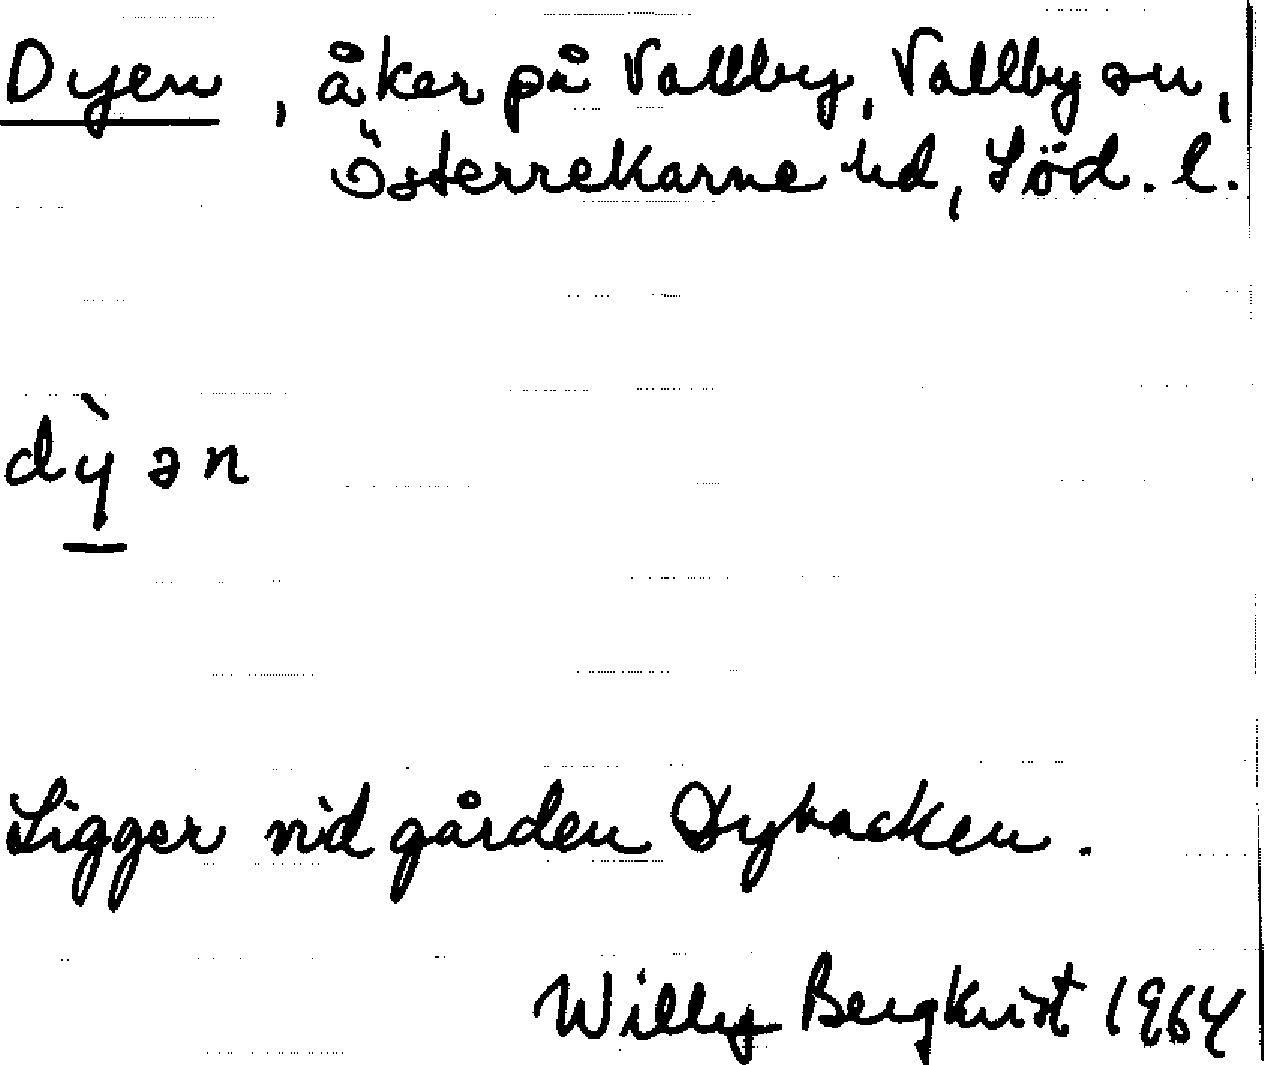 Dyen, åker på Vallby, Vallby sn,
Österrekarne hd, Söd. l.
dỳən
Ligger vid gården Dybacken.
Willy Bergkvist 1964